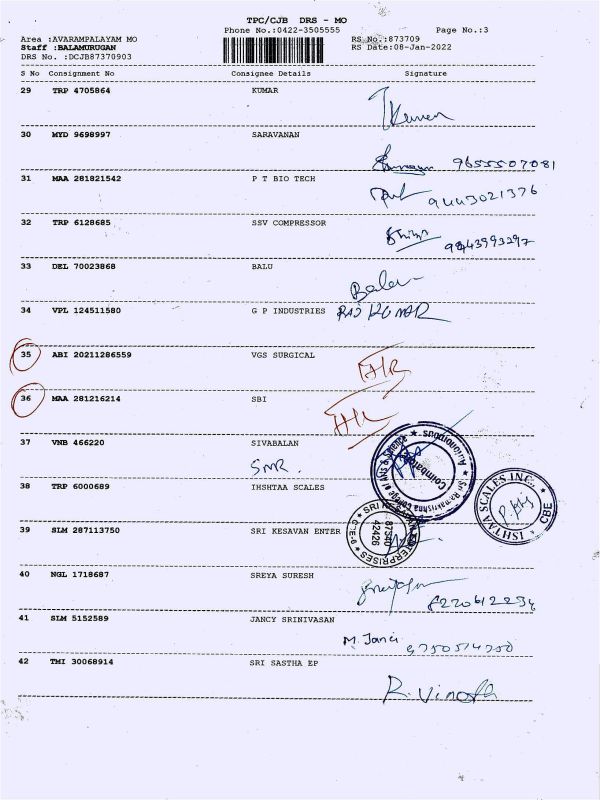 TPC/CJB DRS - MO
Phone No.:0422-3505555 Page No.:3
Area :AVARAMPALAYAM MO RS No.:873709
Staff :BALAMURUGAN RS Date:08-Jan-2022
DRS No. :DCJB87370903
S No Consignment No Consignee Details Signature
29 TRP 4705864 KUMAR
Kumar
30 MYD 9698997 SARAVANAN
9655507081
31 MAA 281821542 P T BIO TECH
9443021376
32 TRP 6128685 SSV COMPRESSOR
9843993297
33 DEL 70023868 BALU
Balu
34 VPL 124511580 G P INDUSTRIES RAJ KUMAR
35 ABI 20211286559 VGS SURGICAL
36 MAA 281216214 SBI
37 VNB 466220 SIVABALAN
SMR.
Sri Ramakrishna College of Arts & Science ★ Autonomous ★
Coimbatore
38 TRP 6000689 IHSHTAA SCALES
IHSHTAA SCALES INC. ★ CBE ★
39 SLM 287113750 SRI KESAVAN ENTER
SRI KESAVAN ENTERPRISES
87540
42426
40 NGL 1718687 SREYA SURESH
8220612234
41 SLM 5152589 JANCY SRINIVASAN
M. Janci 9750514250
42 TMI 30068914 SRI SASTHA EP
R. Vinoth